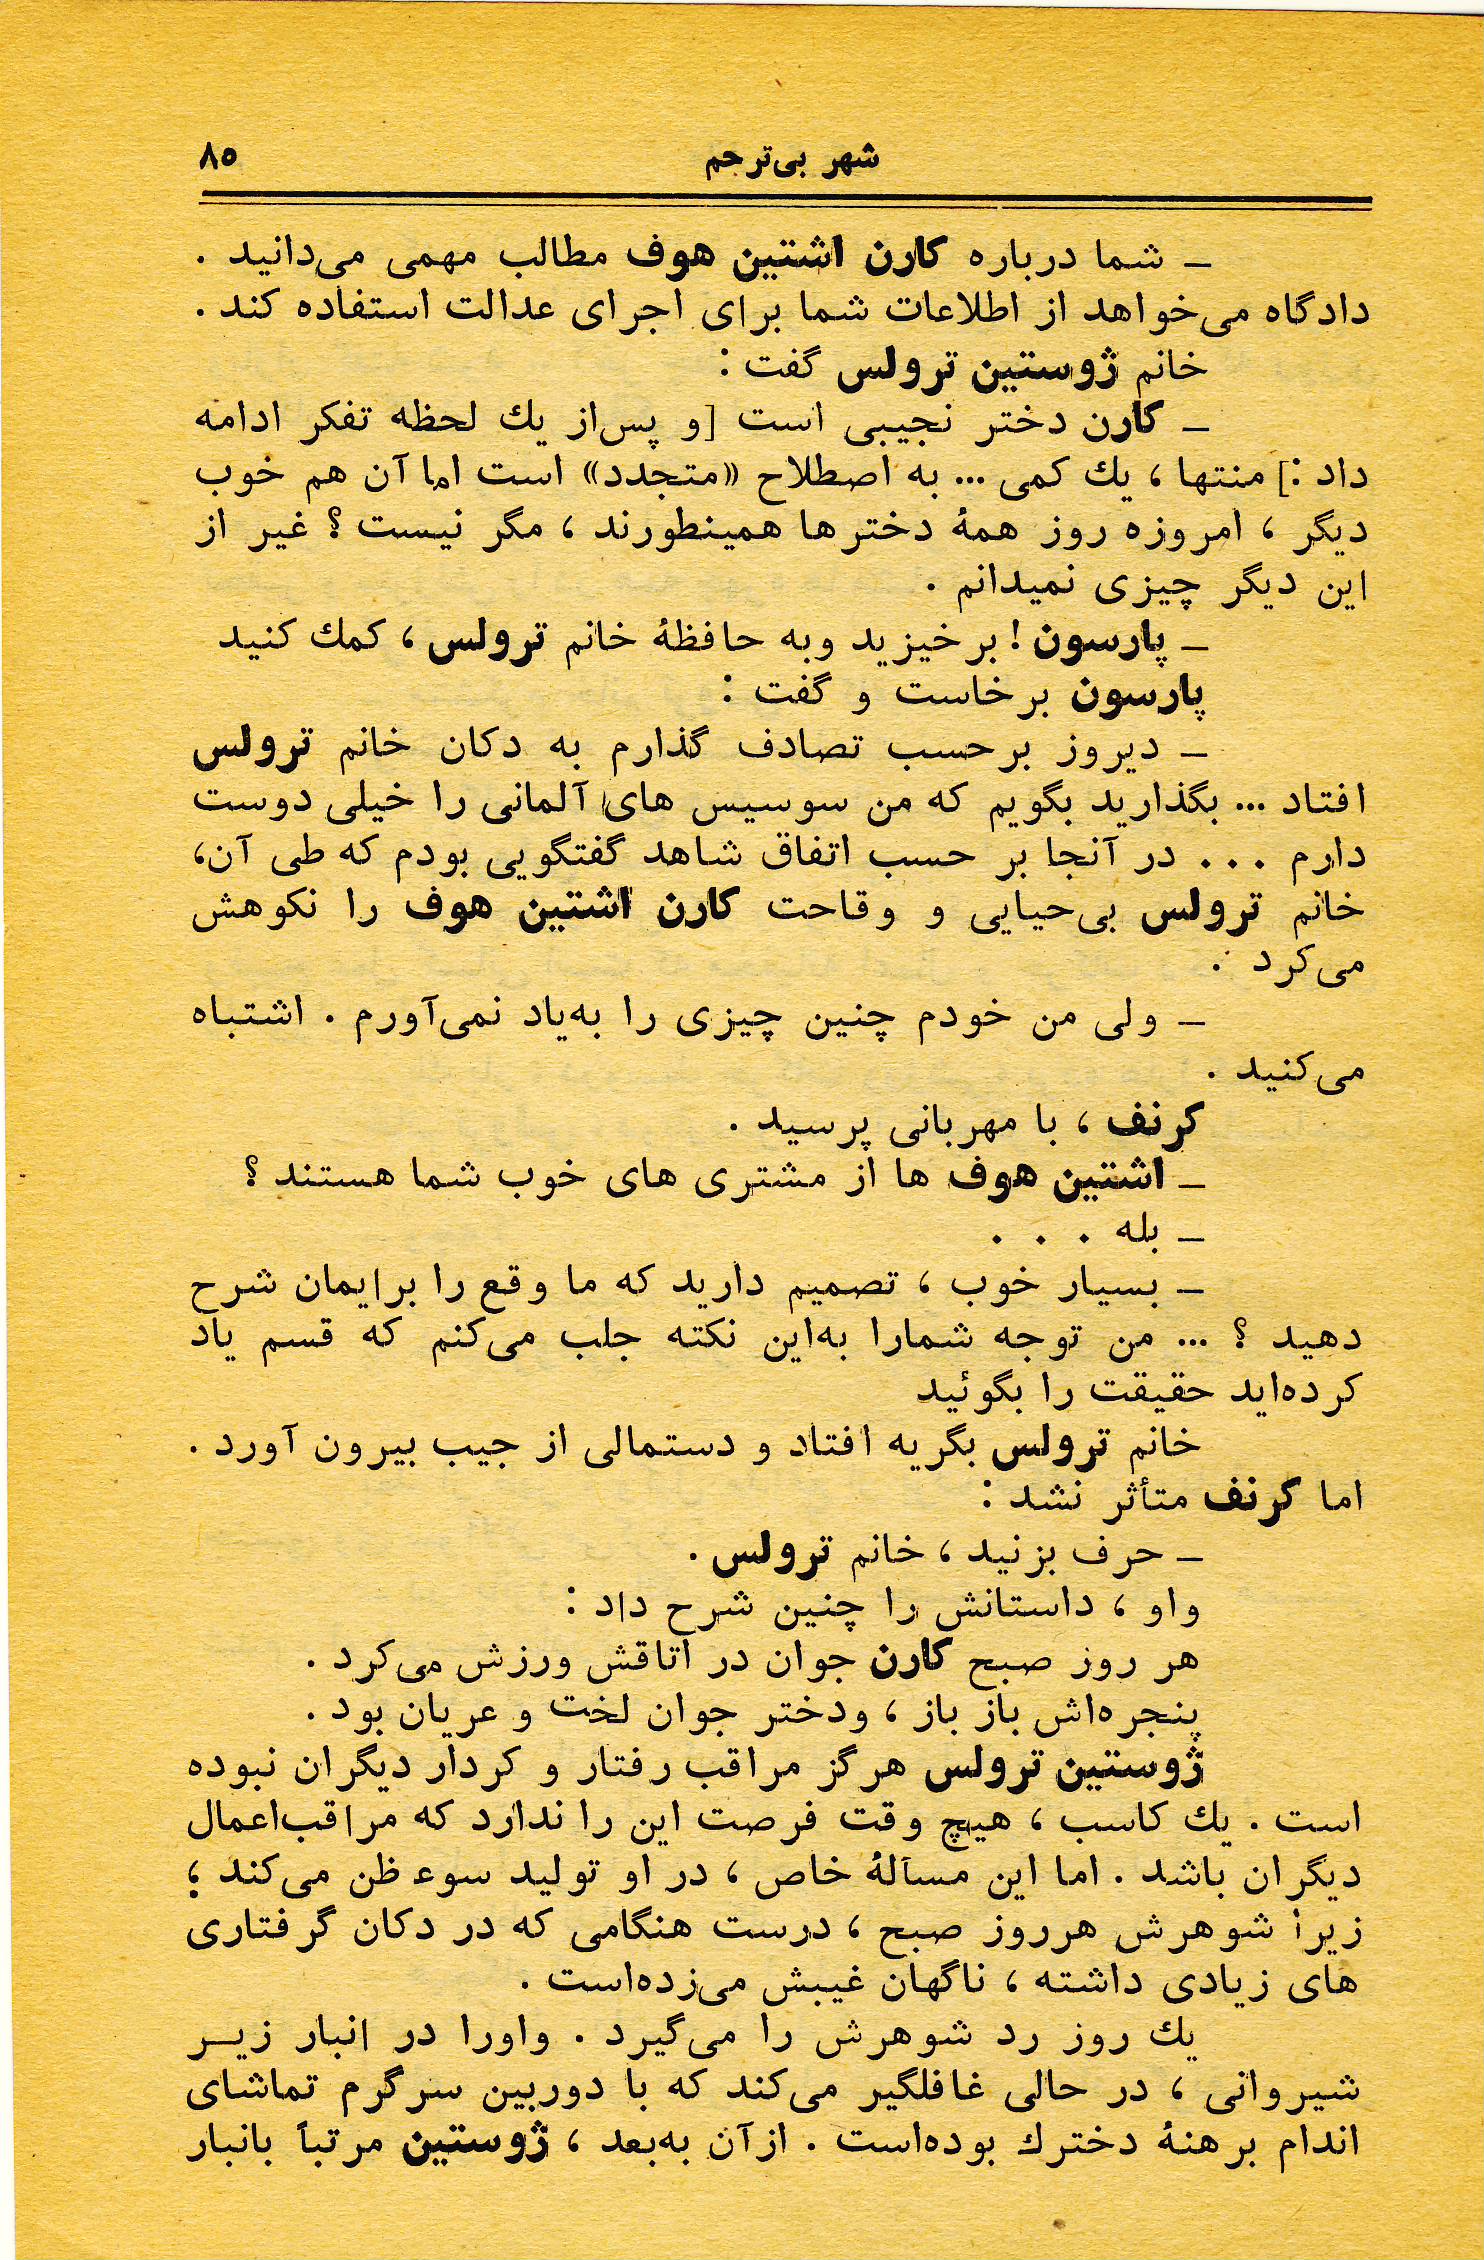 شهر بی‌ترحم
۸۵
ـ شما درباره کارن اشتین هوف مطالب مهمی می‌دانید .
دادگاه می‌خواهد از اطلاعات شما برای اجرای عدالت استفاده کند .
خانم ژوستین ترولس گفت :
ـ کارن دختر نجیبی است [و پس‌از یك لحظه تفکر ادامه
داد :] منتها ، یك کمی ... به اصطلاح «متجدد» است اما آن هم خوب
دیگر ، امروزه روز همهٔ دخترها همینطورند ، مگر نیست ؟ غیر از
این دیگر چیزی نمیدانم .
ـ پارسون ! برخیزید وبه حافظهٔ خانم ترولس ، کمك کنید
پارسون برخاست و گفت :
ـ دیروز برحسب تصادف گذارم به دکان خانم ترولس
افتاد ... بگذارید بگویم که من سوسیس های آلمانی را خیلی دوست
دارم . . . در آنجا بر حسب اتفاق شاهد گفتگویی بودم که طی آن،
خانم ترولس بی‌حیایی و وقاحت کارن اشتین هوف را نکوهش
می‌کرد .
ـ ولی من خودم چنین چیزی را به‌یاد نمی‌آورم . اشتباه
می‌کنید .
کرنف ، با مهربانی پرسید .
ـ اشتین هوف ها از مشتری های خوب شما هستند ؟
ـ بله . . .
ـ بسیار خوب ، تصمیم دارید که ما وقع را برایمان شرح
دهید ؟ ... من توجه شمارا به‌این نکته جلب می‌کنم که قسم یاد
کرده‌اید حقیقت را بگوئید
خانم ترولس بگریه افتاد و دستمالی از جیب بیرون آورد .
اما کرنف متأثر نشد :
ـ حرف بزنید ، خانم ترولس .
واو ، داستانش را چنین شرح داد :
هر روز صبح کارن جوان در اتاقش ورزش می‌کرد .
پنجره‌اش باز باز ، ودختر جوان لخت و عریان بود .
ژوستین ترولس هرگز مراقب رفتار و کردار دیگران نبوده
است . یك کاسب ، هیچ وقت فرصت این را ندارد که مراقب‌اعمال
دیگران باشد . اما این مسألهٔ خاص ، در او تولید سوء ظن می‌کند ؛
زیرا شوهرش هرروز صبح ، درست هنگامی که در دکان گرفتاری
های زیادی داشته ، ناگهان غیبش می‌زده‌است .
یك روز رد شوهرش را می‌گیرد . واورا در انبار زیـر
شیروانی ، در حالی غافلگیر می‌کند که با دوربین سرگرم تماشای
اندام برهنهٔ دخترك بوده‌است . ازآن به‌بعد ، ژوستین مرتباً بانبار